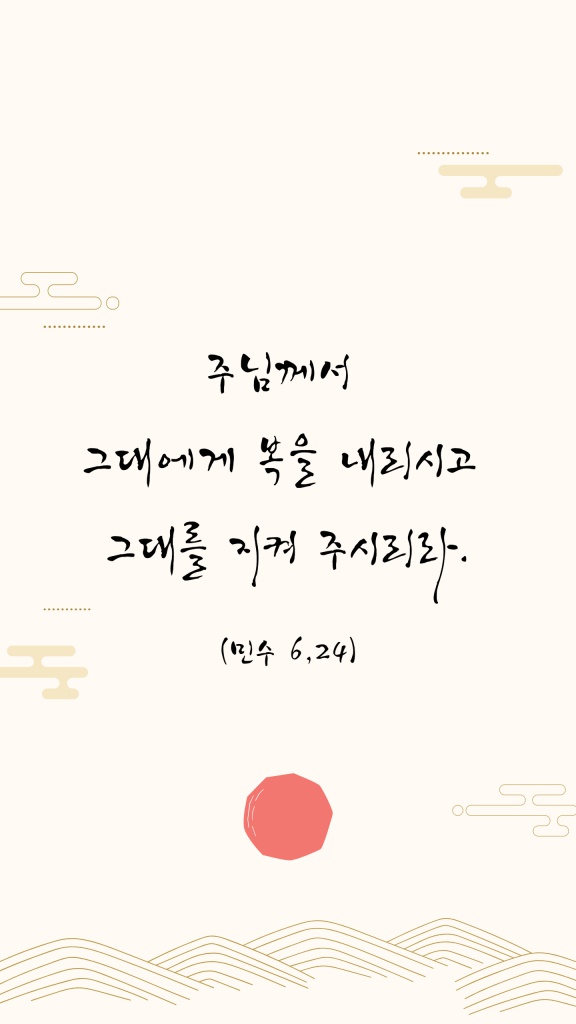 주님께서
그대에게 복을 내리시고
그대를 지켜 주시리라.
(민수 6,24)